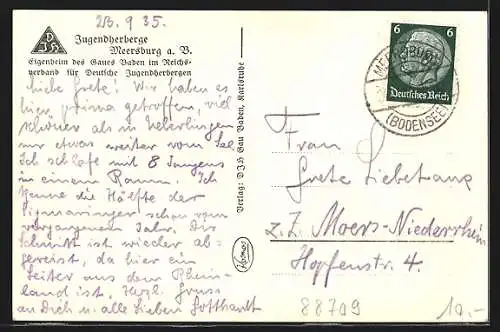 23.9 35.
DJH
Jugendherberge
Meersburg a. B.
Eigenheim des Gaues Baden im Reichs-
verband für Deutsche Jugendherbergen
Liebe Grete! Wir haben es
hier prima getroffen, viel
schöner als in Ueberlingen
nur etwas weiter vom See.
Ich schlafe mit 8 Jungens
in einem Raum. Ich
kenne die Hälfte der
Sigmaringer schon vom
vergangenen Jahr. Die
Schmitt ist wieder ab-
gereist, da hier ein
Leiter aus dem Rhein-
land ist. Herzl. Gruss
an Dich u. alle Lieben Gotthardt
Verlag: DJH Gau Baden, Karlsruhe
Hamos
6 6
Deutsches Reich
MEERSBURG
(BODENSEE)
Frau
Grete Liebetanz
z. Z. Moers-Niederrhein
Hopfenstr. 4.
88709
10,-